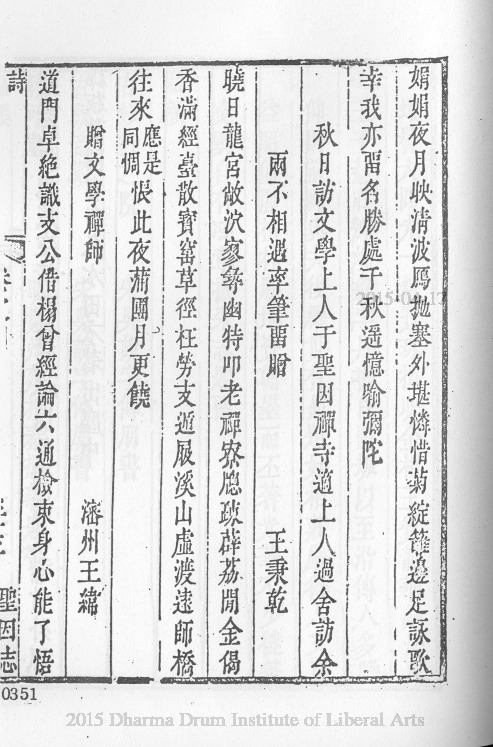 娟娟夜月映清波鴈抛塞外堪憐惜菊綻籬邊足詠歌
幸我亦留名勝處千秋遥憶喻彌陀
秋日訪文學上人于聖因禪寺適上人過舍訪余
兩不相遇率筆留贈
王秉乾
曉日龍宮敞泬寥尋幽特叩老禪寮牕疎薜荔聞金偈
香滿經臺散寶窰草徑枉勞支遁屐溪山虛渡遠師橋
往來應是同惆悵此夜蒲團月更饒
贈文學禪師
瀋州王緯
道門卓絶識支公借榻曾經論六通檢束身心能了悟
詩
聖因志
0351
2015 Dharma Drum Institute of Liberal Arts